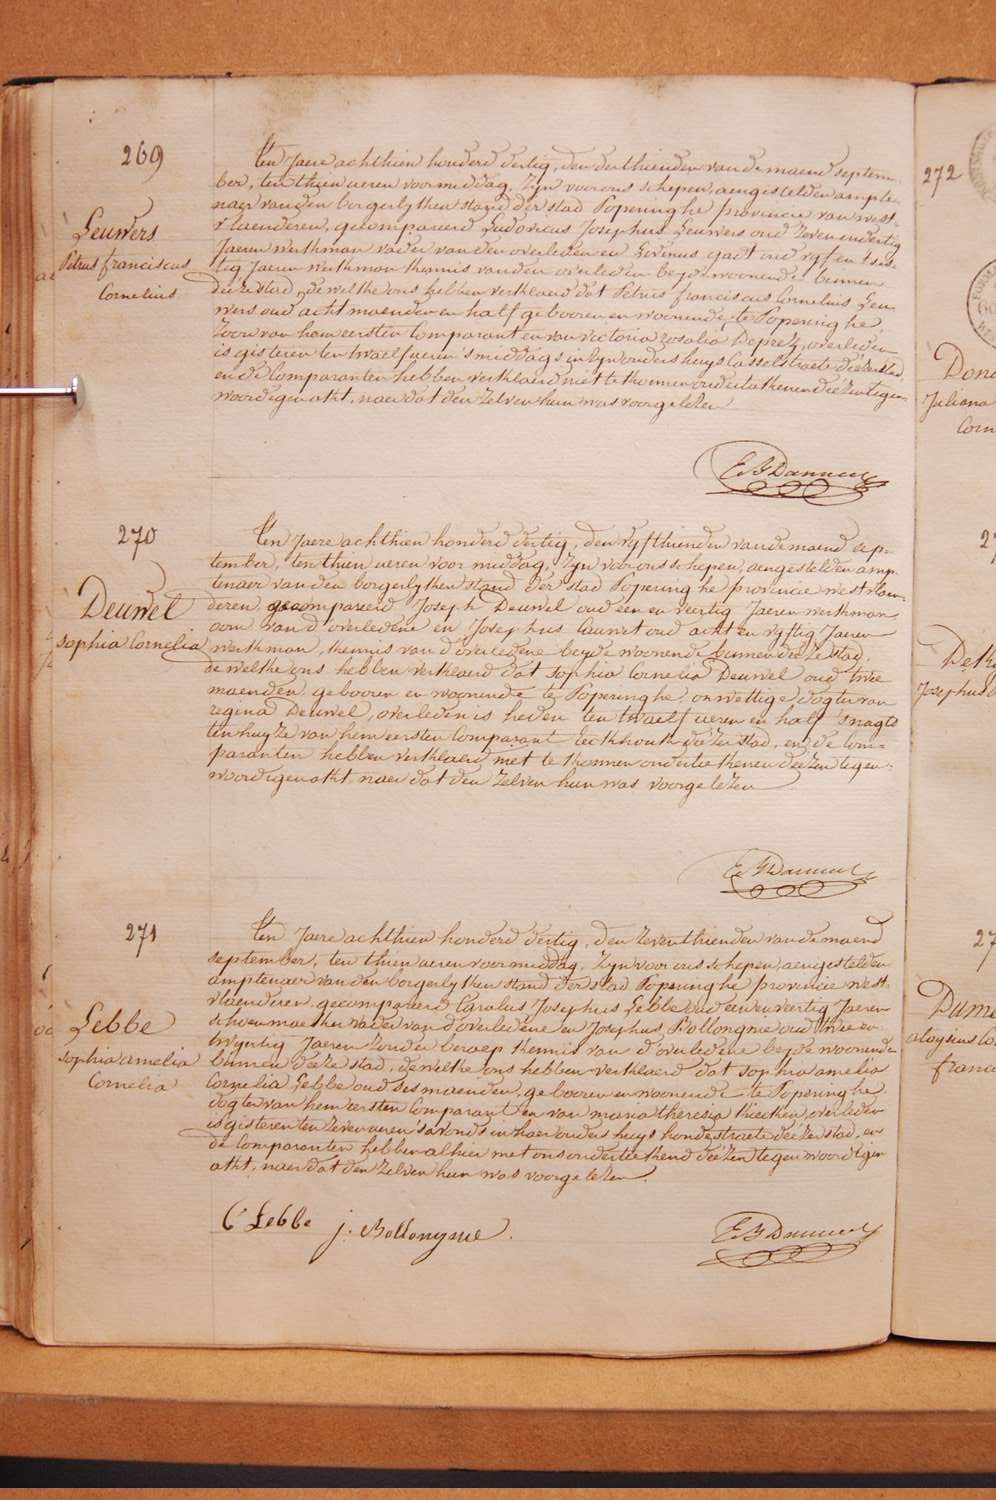 269
Leuwers
Petrus franciscus
Cornelius
Ten Jaere achthien honderd dertig, den derthienden van de maend septem-
ber, ten thien ueren voormiddag, Zyn voor ons schepen, aengestelden ampte-
naer van den borgerlyken stand der stad Poperinghe provincie van west-
vlaenderen, gecompareerd Ludovicus Josephus Leuwers oud zevenendertig
Jaeren werkman vader van den overleden en Livinus gaet oud vyf en tses-
tig Jaeren werkman kennis van den overleden beyde woonende binnen
deéze stad, de welke ons hebben verklaerd dat Petrus franciscus Cornelius Leu-
wers oud acht maenden en half gebooren en woonende, te Poperinghe,
Zoon van hem eersten Comparant en van victoria rosalia Deprez, overleden
is gisteren ten twaelf ueren 's middags in zyn ouders huys Casselstraete deézer stad,
en de Comparanten hebben verklaerd niet te konnen onderteekenen deézen tegen-
woordigen akt, naer dat den zelven hun was voorgelezen
270
Deuwel
sophia Cornelia
Ten Jaere achthien honderd dertig, den vyfthienden van de maend sep-
tember, ten thien ueren voormiddag, Zyn voor ons schepen, aengestelden amp-
tenaer van den borgerlyken stand der stad Poperinghe provincie westvlaen-
deren, gecompareerd Joseph Deuwel oud een en veertig Jaeren werkman
oom van d'overledene en Josephus Cauwet oud acht en vyftig Jaeren
werkman, kennis van d'overledene beyde woonende binnen deéze stad,
de welke ons hebben verklaerd dat sophia Cornelia Deuwel oud twee
maenden gebooren en woonende te Poperinghe, onwettige dogter van
regina Deuwel, overleden is heden ten twaelf ueren en half 's nagts
ten huyze van hem eersten Comparant deézer stad, en de Com-
paranten hebben verklaerd niet te konnen onderteekenen deézen tegen-
woordigen akt, naer dat den zelven hun was voorgelezen
271
Lebbe
sophia amelia
Cornelia
Ten Jaere achthien honderd dertig, den zeventhienden van de maend
september, ten thien ueren voormiddag, Zyn voor ons schepen, aengestelden
amptenaer van den borgerlyken stand der stad Poperinghe provincie west-
vlaenderen, gecompareerd Carolus Josephus Lebbe oud een en veertig Jaeren
schoenmaeker vader van d'overledene en Josephus Bollongnie oud twee en
twyntig Jaeren zonder beroep kennis van d'overledene beyde woonende
binnen deéze stad, de welke ons hebben verklaerd dat sophia amelia
Cornelia Lebbe oud ses maenden, gebooren en woonende te Poperinghe
dogter van hem eersten Comparant en van maria theresia Kiecken, overleden
is gisteren ten zeven ueren 's avonds in haer ouders huys hondestraete deézer stad, en
de Comparanten hebben alhier met ons onderteekend deézen tegenwoordigen
akt, naer dat den zelven hun was voorgelezen.
C Lebbe j. Bollongnie.
272
Juliana
Corn
Josephus
Dume
aloysius Co
franci